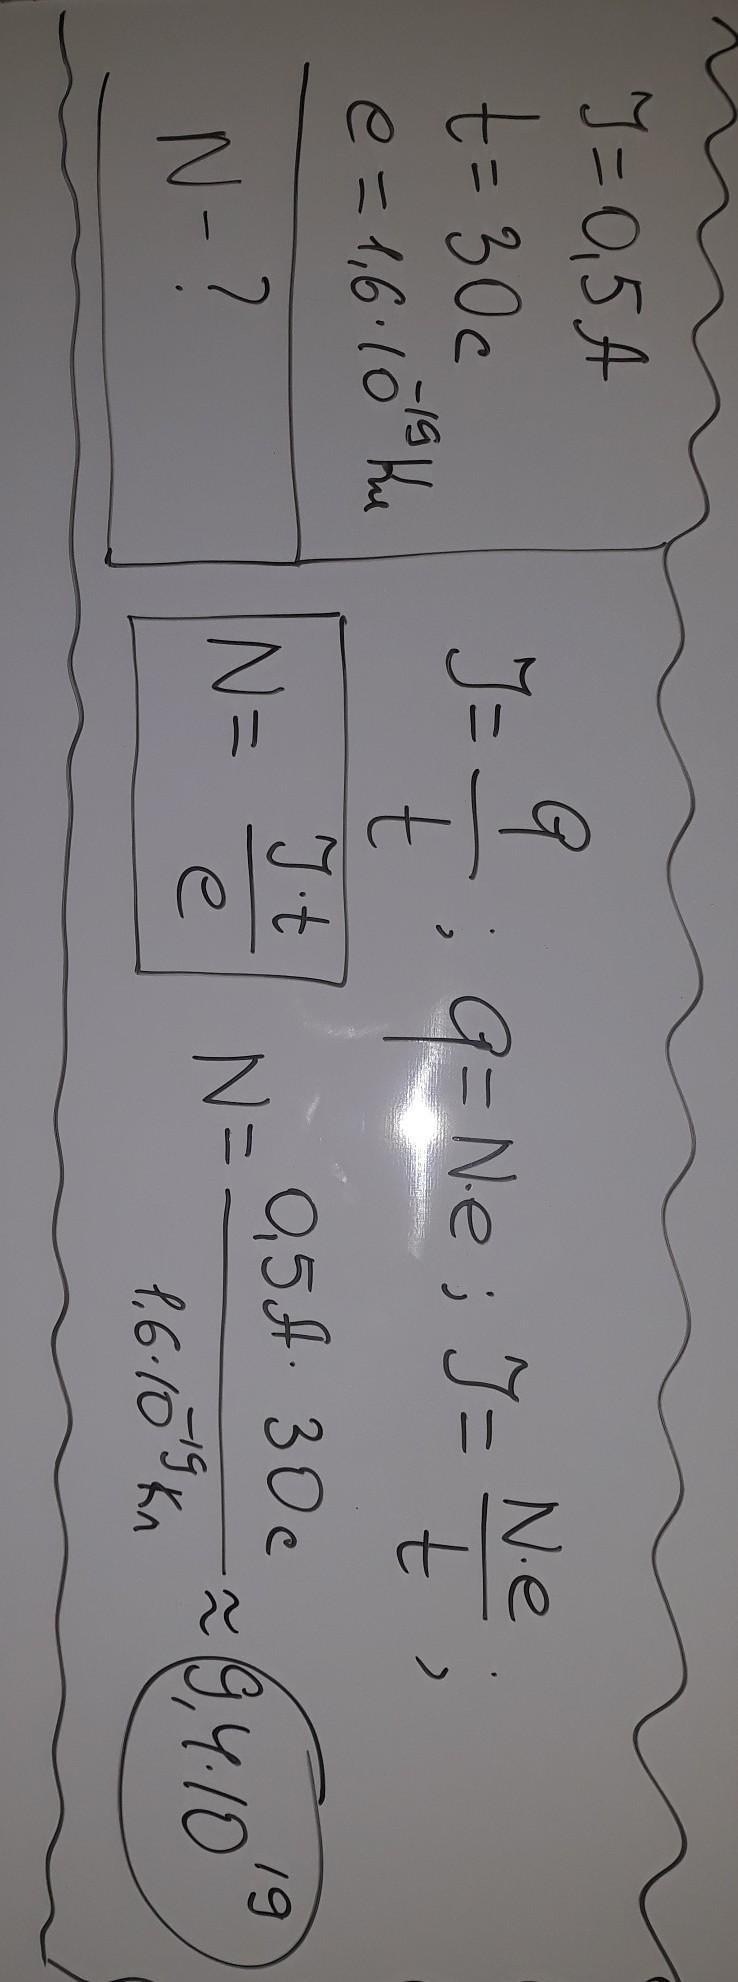 J = 0,5 A
t = 30 c
e = 1,6·10⁻¹⁹ Кл
N - ?
J = q/t ; q = N·e ; J = N·e/t ;
N = J·t/e
N = 0,5 A · 30 c / 1,6·10⁻¹⁹ Кл ≈ 9,4·10¹⁹